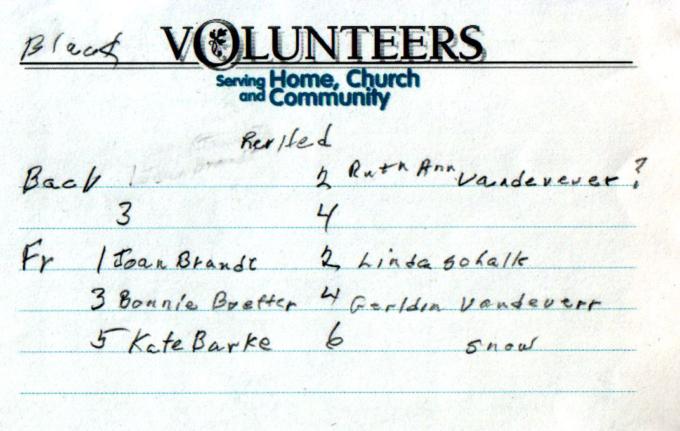 Black VOLUNTEERS
Serving Home, Church
and Community
Back 1 2 Ruth Ann Vandevever ?
3 4
Fr 1 Joan Brandt 2 Linda Schalk
3 Bonnie 4 Vandeverr
5 Kate Barke 6 Snow